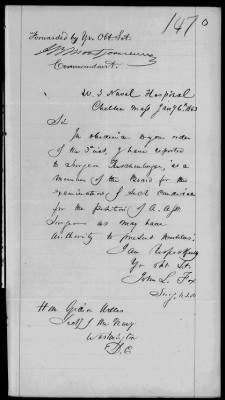 1470
Forwarded by Yr Obt Svt
J B Montgomery
Commandant.
U. S Naval Hospital
Chelsea Mass Jany 6th 1863
Sir
In obedience to your order
of the 3d inst, I have reported
to Surgeon Ruschenberger, as a
member of the Board for the
examination of such candidates
for the position of A. Asst
Surgeon as may have
authority to present themselves.
I am Respectfully
Yr Obt St.
John L. Fox
Surg. U.S.N.
Hon Gideon Welles
Secty of the Navy
Washington
D. C